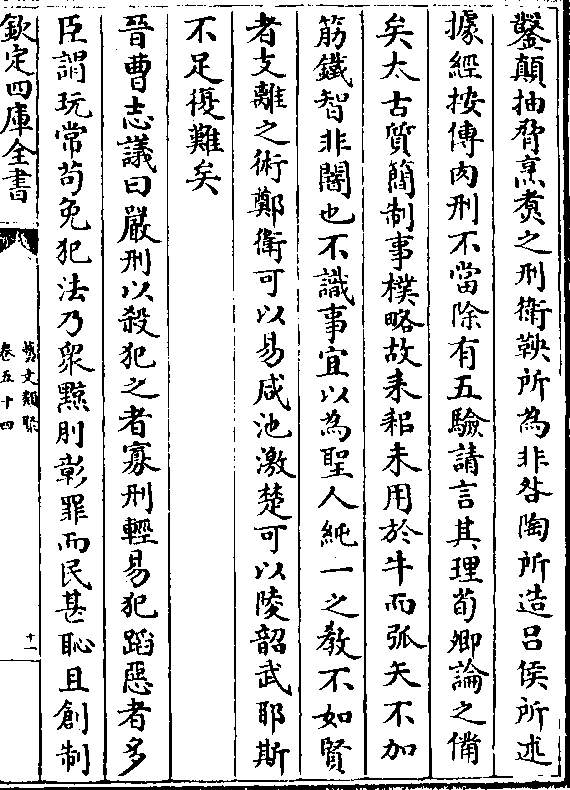 鑿顛抽脅烹煑之刑衛鞅所為非咎陶所造吕侯所述
據經按傳肉刑不當除有五驗請言其理荀卿論之備
矣太古質簡制事樸略故耒耜未用於牛而弧矢不加
筋鐵智非闇也不識事宜以為聖人純一之教不如賢
者支離之術鄭衛可以易咸池激楚可以陵韶武耶斯
不足復難矣
晉曹志議曰嚴刑以殺犯之者寡刑輕易犯蹈惡者多
臣謂玩常茍免犯法乃衆黥刖彰罪而民甚恥且創制
欽定四庫全書
藝文類聚
卷五十四
十一